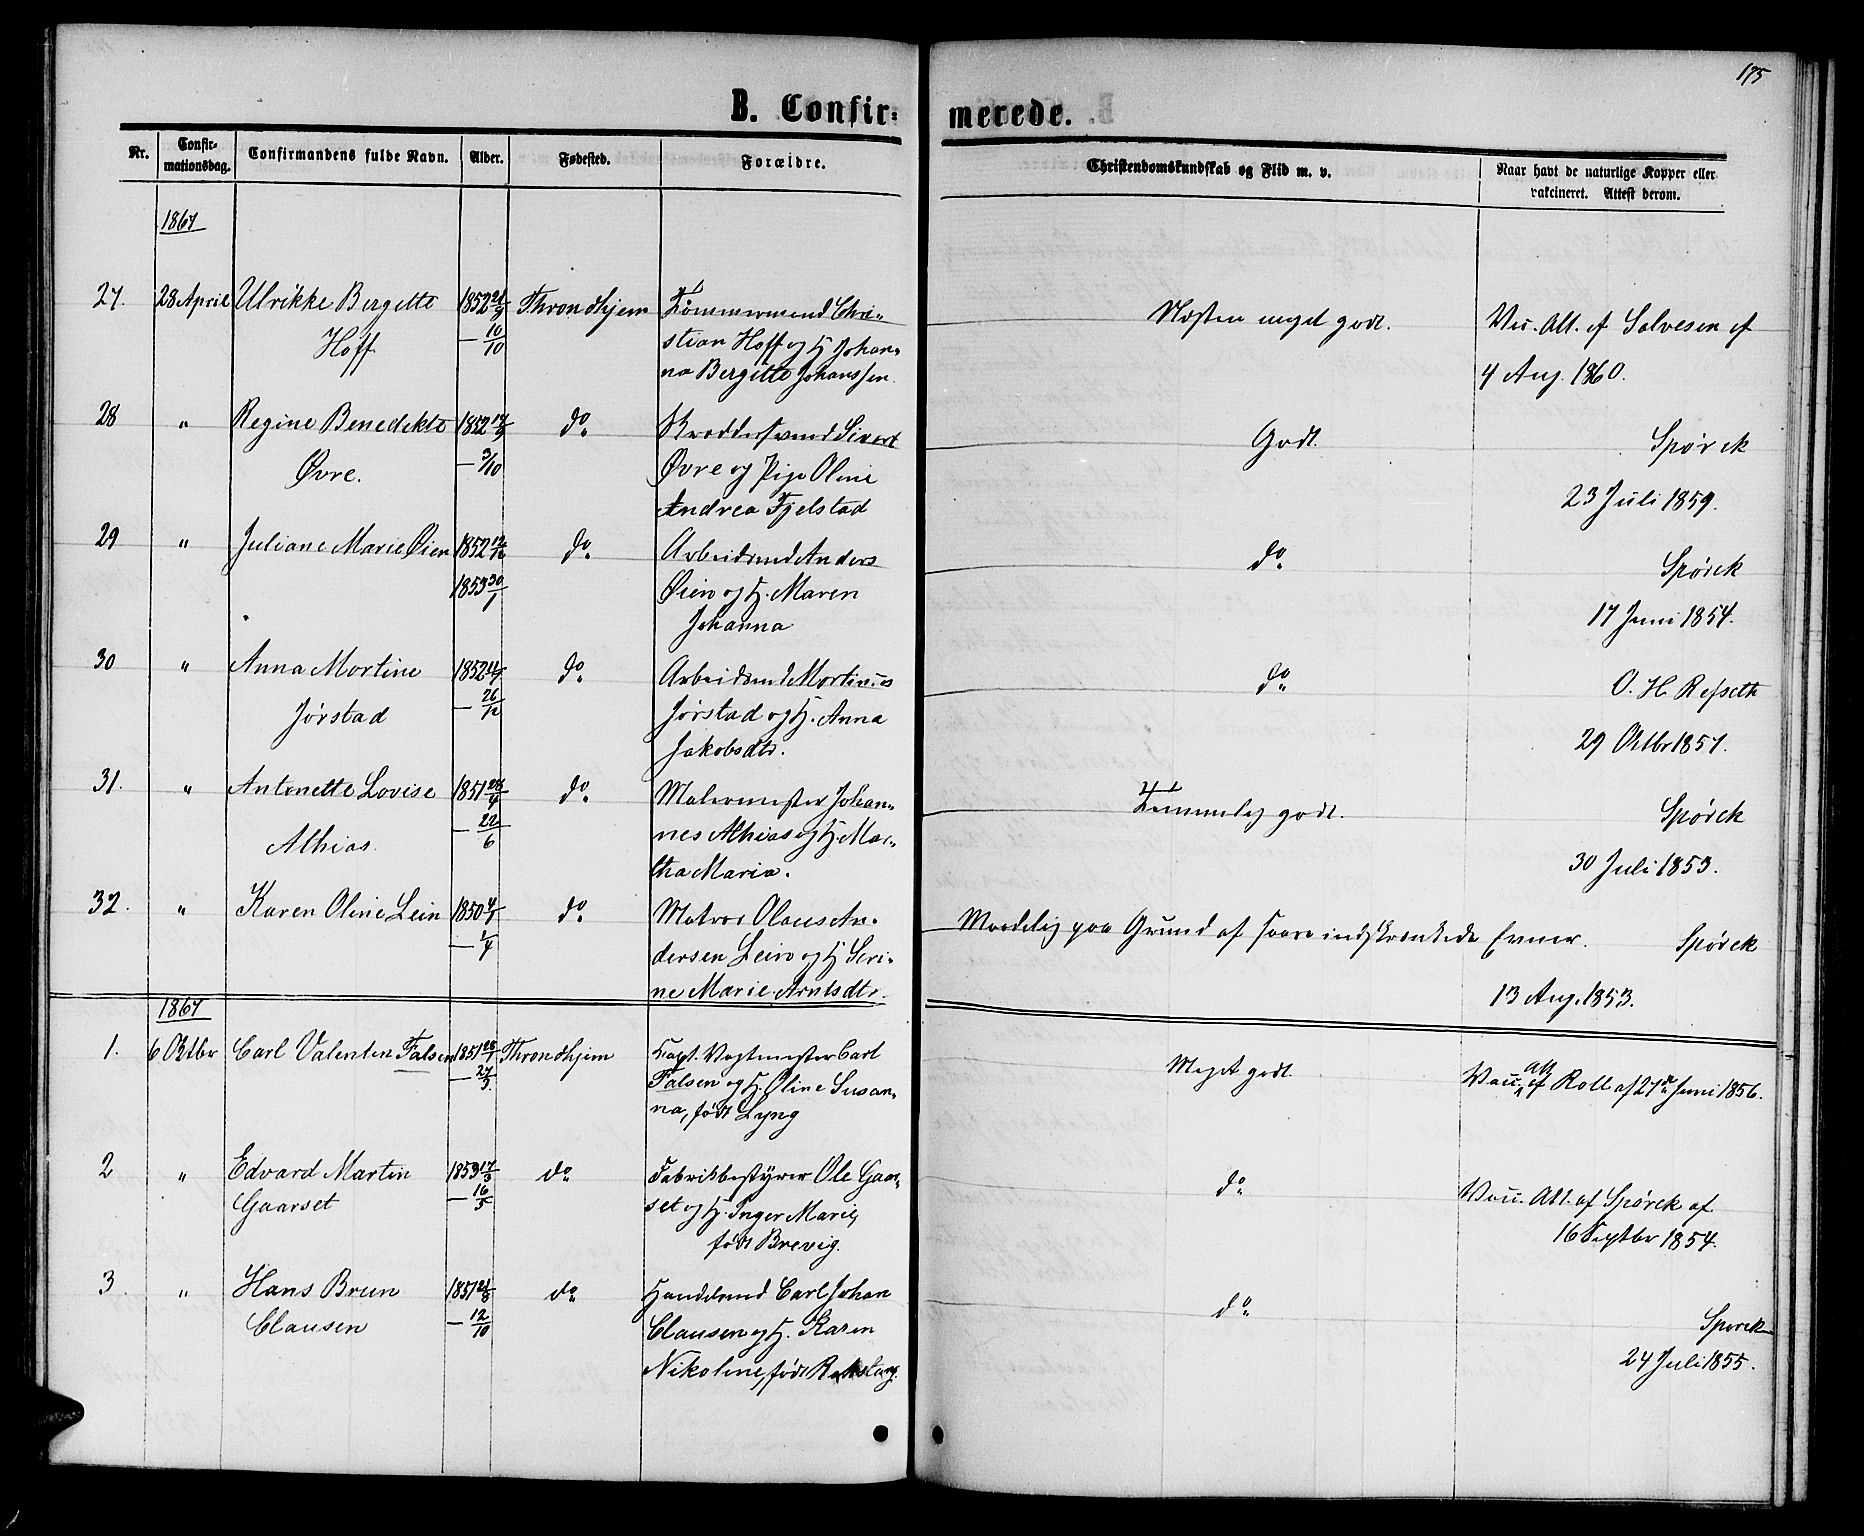 175
B. Confir=
merede.
Nr.
Confir-
mationsdag.
Confirmandens fulde Navn.
Alder.
Fødested.
Forældre.
Christendomskundskab og Flid m. v.
Naar havt de naturlige Kopper eller
vakcineret. Attest derom.
1867
27. 28 April Ulrikke Bergitte 1852 21/9 Throndhjem Tømmermand Chri=
Hoff — 10/10 stian Hoff og H. Johan=
na Bergitte Johanssen.
Næsten meget godt. Vac. Att. af Salvesen af
4 Aug. 1860.
28 " Regine Benedikte 1852 17/9 do Sivert
Øvre. — 3/10 Øvre og Pige Oline
Andrea Fjelstad
Godt. Spørck
23 Juli 1859.
29 " Juliane Marie Øien 1852 12/12 do Arbeidsmd Anders
1853 30/1 Øien og H. Maren
Johanna
do Spørck
17 Juni 1854.
30 " Anna Mortine 1852 do Arbeidsmd Martinus
Jørstad — 26/12 Jørstad og H. Anna
Jakobsdtr.
do O. H. Refseth
29 Oktbr 1857.
31. " Antonette Lovise 1851 28/4 do Malermester Johan=
Athias. — 22/6 nes Athias og H. Mar=
tha Maria.
Temmelig godt. Spørck
30 Juli 1853.
32. " Karen Oline Lein 1850 do Matros Olaus An=
— 1/4 dersen Lein og H. Seri=
ne Marie Arntsdtr.
Maadelig paa Grund af saare indskrænkede Evner. Spørck
13 Aug. 1853.
1867
1. 6 Oktbr Carl Valentin Falsen 1851 28/1 Throndhjem Capt. Vagtmester Carl
— 27/3 Falsen og H. Oline Susan=
na, født Lyng
Meget godt. Vacc. Att. af Roll af 27de Juni 1856.
2 " Edvard Martin 1853 17/3 do Fabrikbestyrer Ole Gaar=
Gaarset — 16/5 set og H. Inger Marie,
født Brevig.
do Vacc. Att. af Spørck af
16 Septbr 1854.
3. " Hans Brun 1851 21/8 do Handelsmd Carl Johan
Clausen — 12/10 Clausen og H. Karen
Nikoline, født
do Spørck
24 Juli 1855.